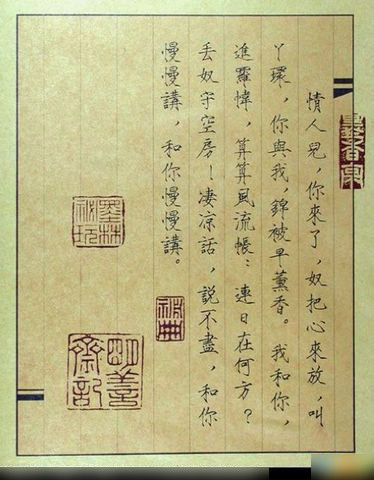 情人兒，你來了，奴把心來放，叫
丫環，你與我，錦被早薰香。我和你，
進羅幃，算算風流帳：連日在何方？
丟奴守空房！淒涼話，說不盡，和你
慢慢講，和你慢慢講。
墨林祕玩